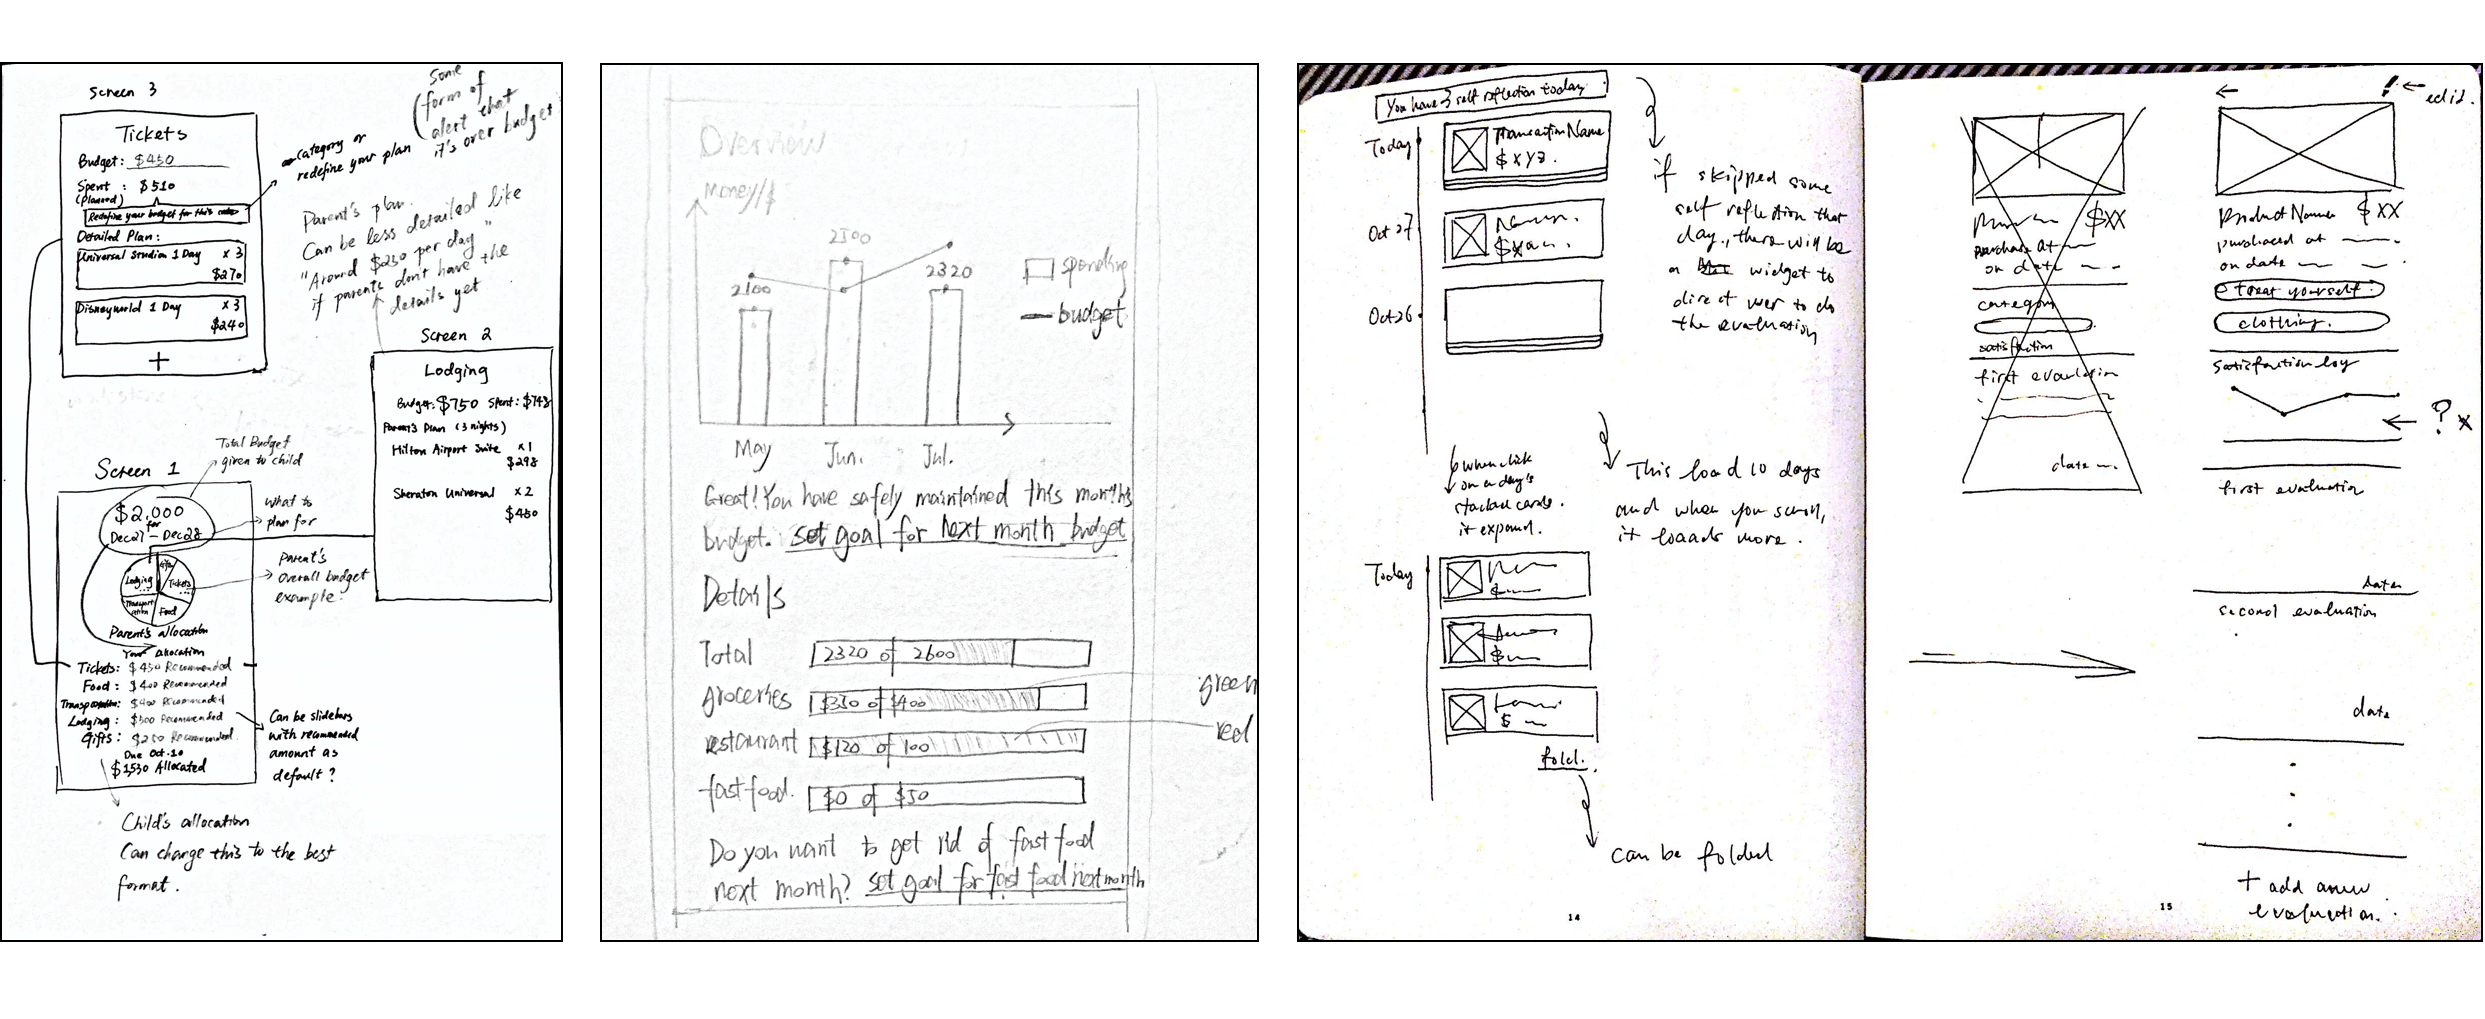 Screen 3
Tickets
Budget: $450
Spent : $510
(Planned)
Redefine your budget for this
Detailed Plan:
Universal Studios 1 Day x 3
$270
Disneyworld 1 Day x 3
$240
+
category or
redefine your plan
(some
form of
alert that
it's over budget
Parent's plan.
Can be less detailed like
"Around $250 per day"
if parents don't have the
details yet
Screen 2
Lodging
Budget: $750 Spent: $748
Parent's Plan (3 nights)
Hilton Airport Suite x1
$298
Sheraton Universal x2
$450
Total Budget
given to child
Screen 1
$2,000
for
Dec21 - Dec28
what to
plan for
Parent's
overall budget
example.
Lodging
Gifts
Tickets
Transportation
Food
Parent's allocation
Your allocation
Tickets: $450 Recommended
Food: $400 Recommended
Transportation: $400 Recommended
Lodging: $500 Recommended
Gifts: $250 Recommended
Due Oct.10
$1530 Allocated
Can be slidebars
with recommended
amount as
default?
Child's allocation
Can change this to the best
format.
Overview
Money/$
2100
2500
2320
spending
budget
May Jun. Jul.
Great! You have safely maintained this month's
budget. set goal for next month budget
Details
Total 2320 of 2600
groceries $350 of $400
green
restaurant $120 of 100
red
fast food. $0 of $50
Do you want to get rid of fast food
next month? set goal for fast food next month
You have 3 self reflection today
Today
Transaction Name
$xyz.
Oct 27
Oct 26
if skipped some
self reflection that
day, there will be
a widget to
direct user to do
the evaluation
when click
on a day's
stacked cards.
it expand.
This load 10 days
and when you scroll,
it loads more.
Today
fold.
can be folded
14
$XX
purchase at
on date
category
satisfaction
first evaluation
date
← ! ← edit.
Product Name $XX
purchased at
on date
treat yourself
clothing.
Satisfaction log
← ? x
first evaluation
date
second evaluation
date
+ add a new
evaluation.
15